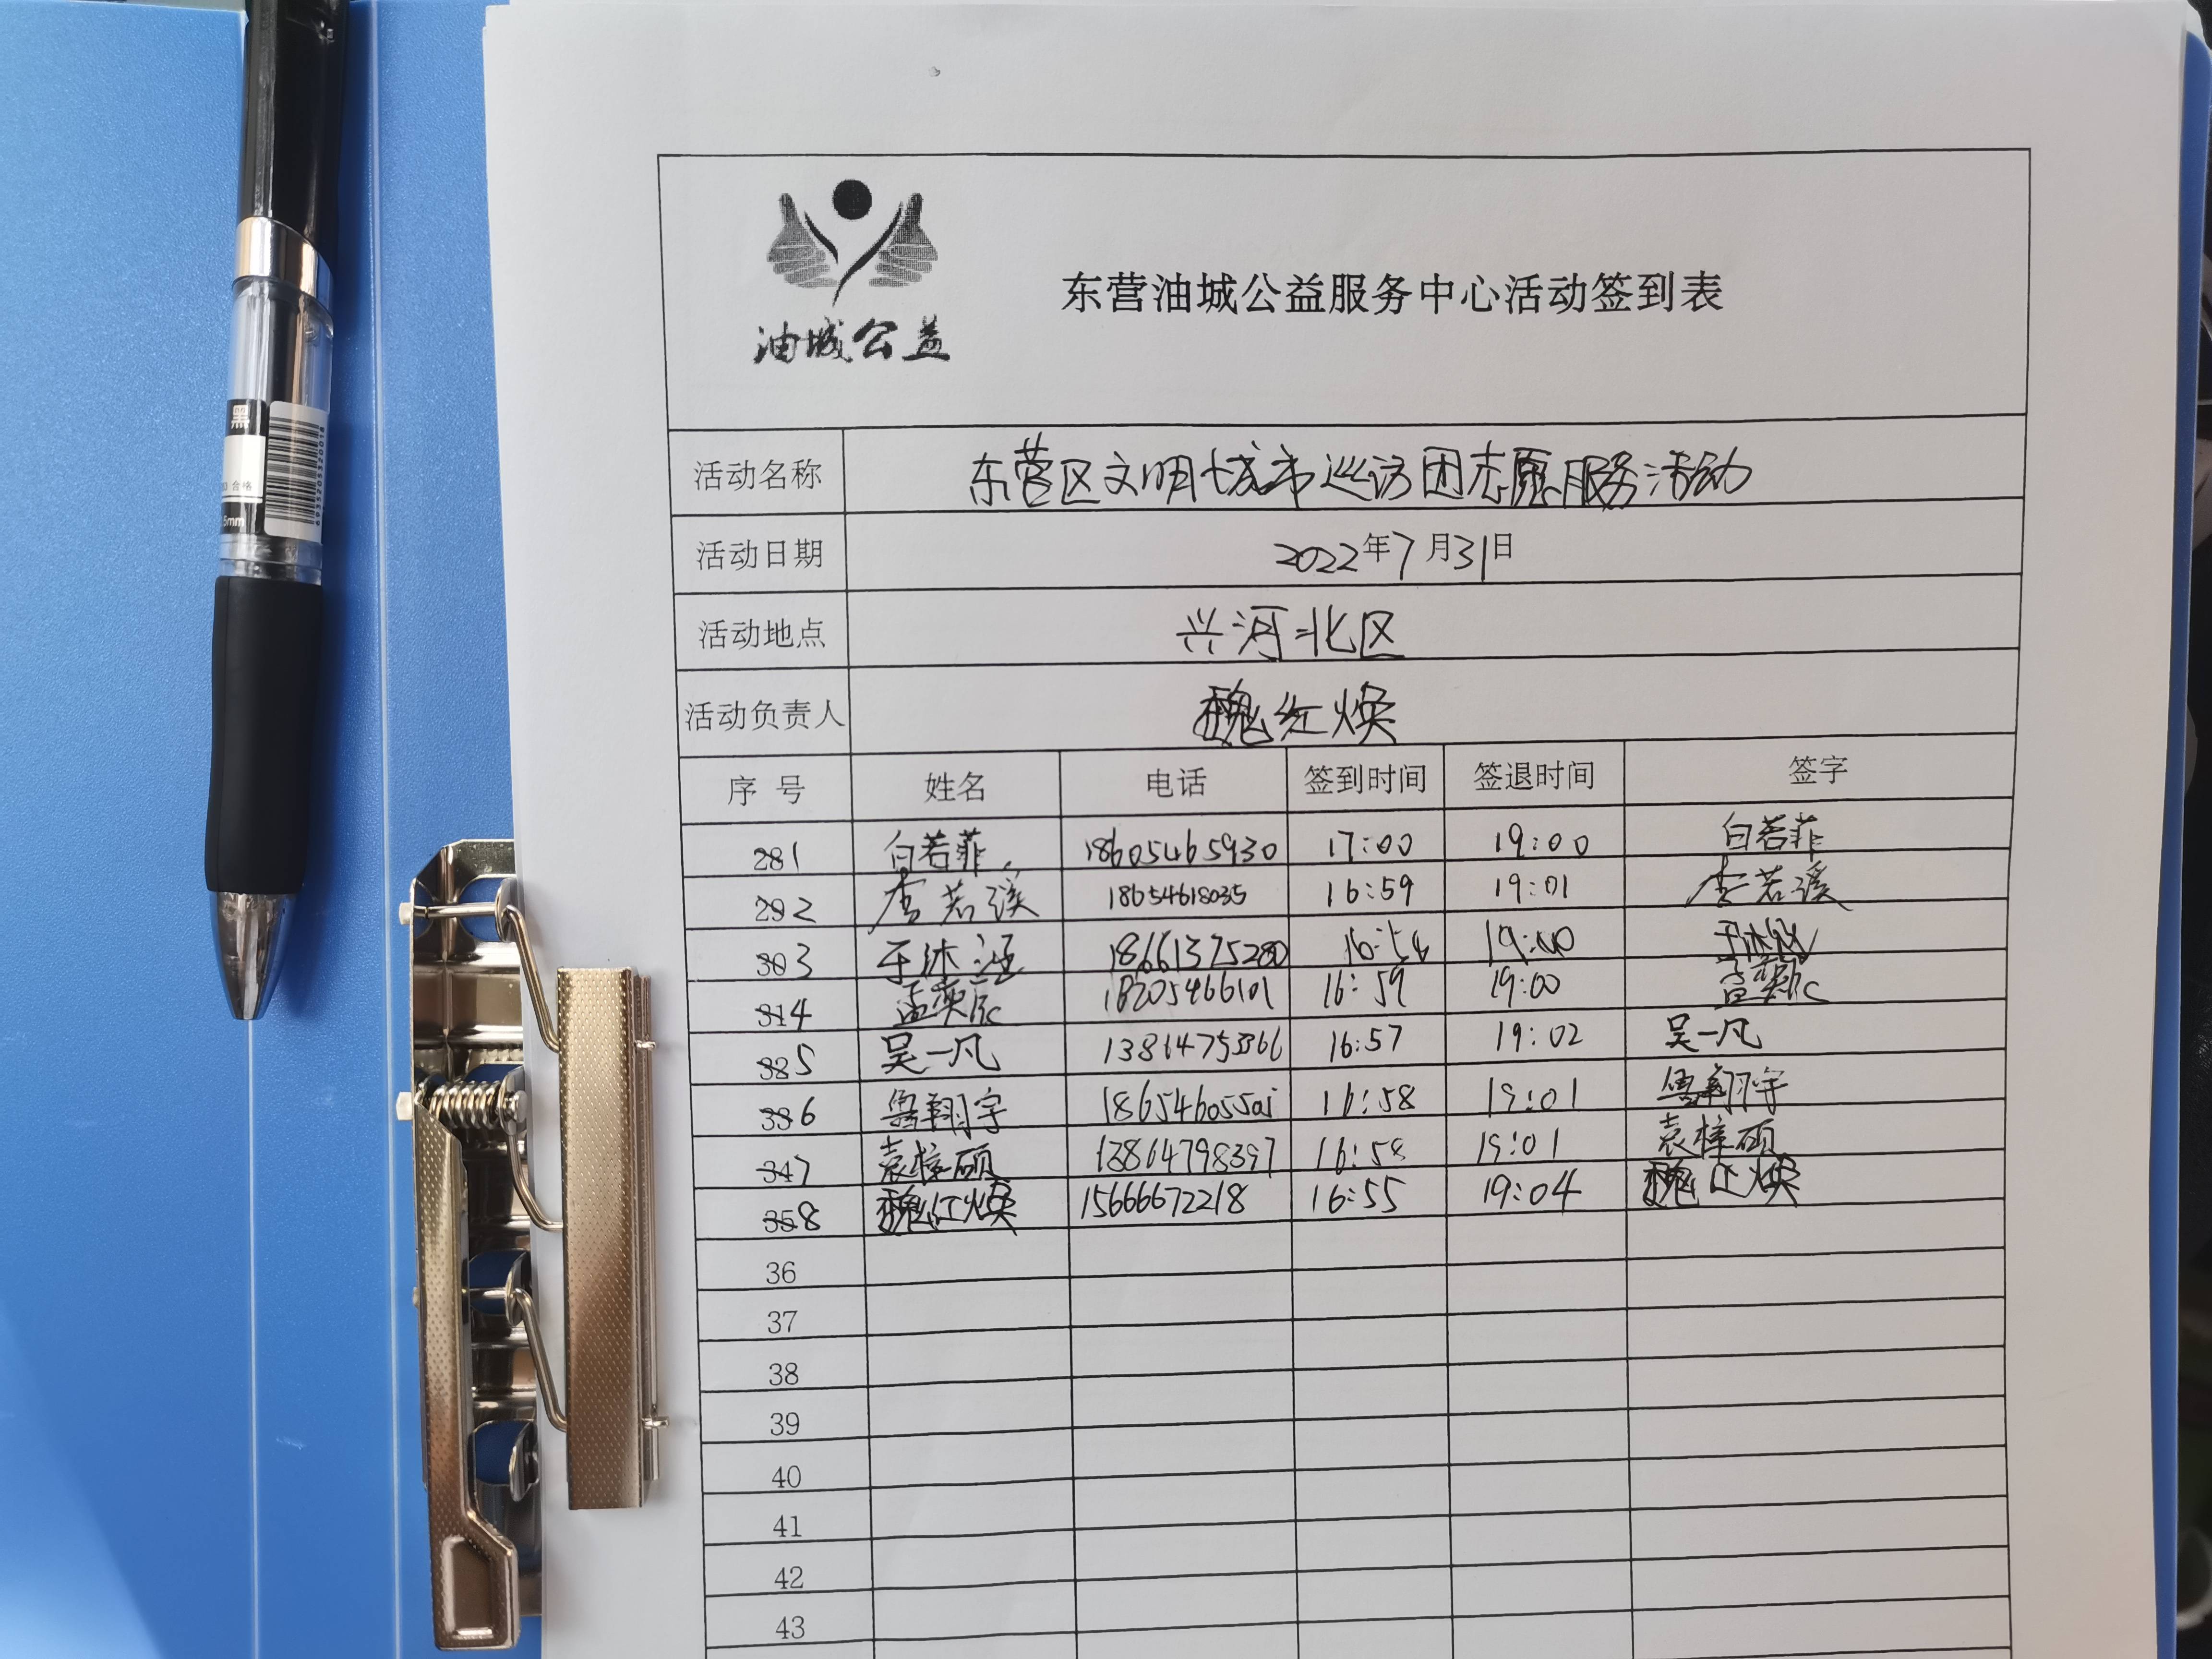 油城公益
东营油城公益服务中心活动签到表
活动名称 东营区文明城市巡访团志愿服务活动
活动日期 2022年7月31日
活动地点 兴河北区
活动负责人 魏红焕
序 号 姓名 电话 签到时间 签退时间 签字
1 白若菲 18605465930 17:00 19:00 白若菲
2 李若溪 18654618035 16:59 19:01 李若溪
3 于沐涵 18661375280 19:00
4 孟奕辰 18205466101 16:59 19:00 孟奕辰
5 吴一凡 16:57 19:02 吴一凡
6 鲁翔宇 16:58 19:01 鲁翔宇
7 袁梓硕 13864798397 16:58 19:01 袁梓硕
8 魏红焕 15666672218 16:55 19:04 魏红焕
36
37
38
39
40
41
42
43
合格
5mm